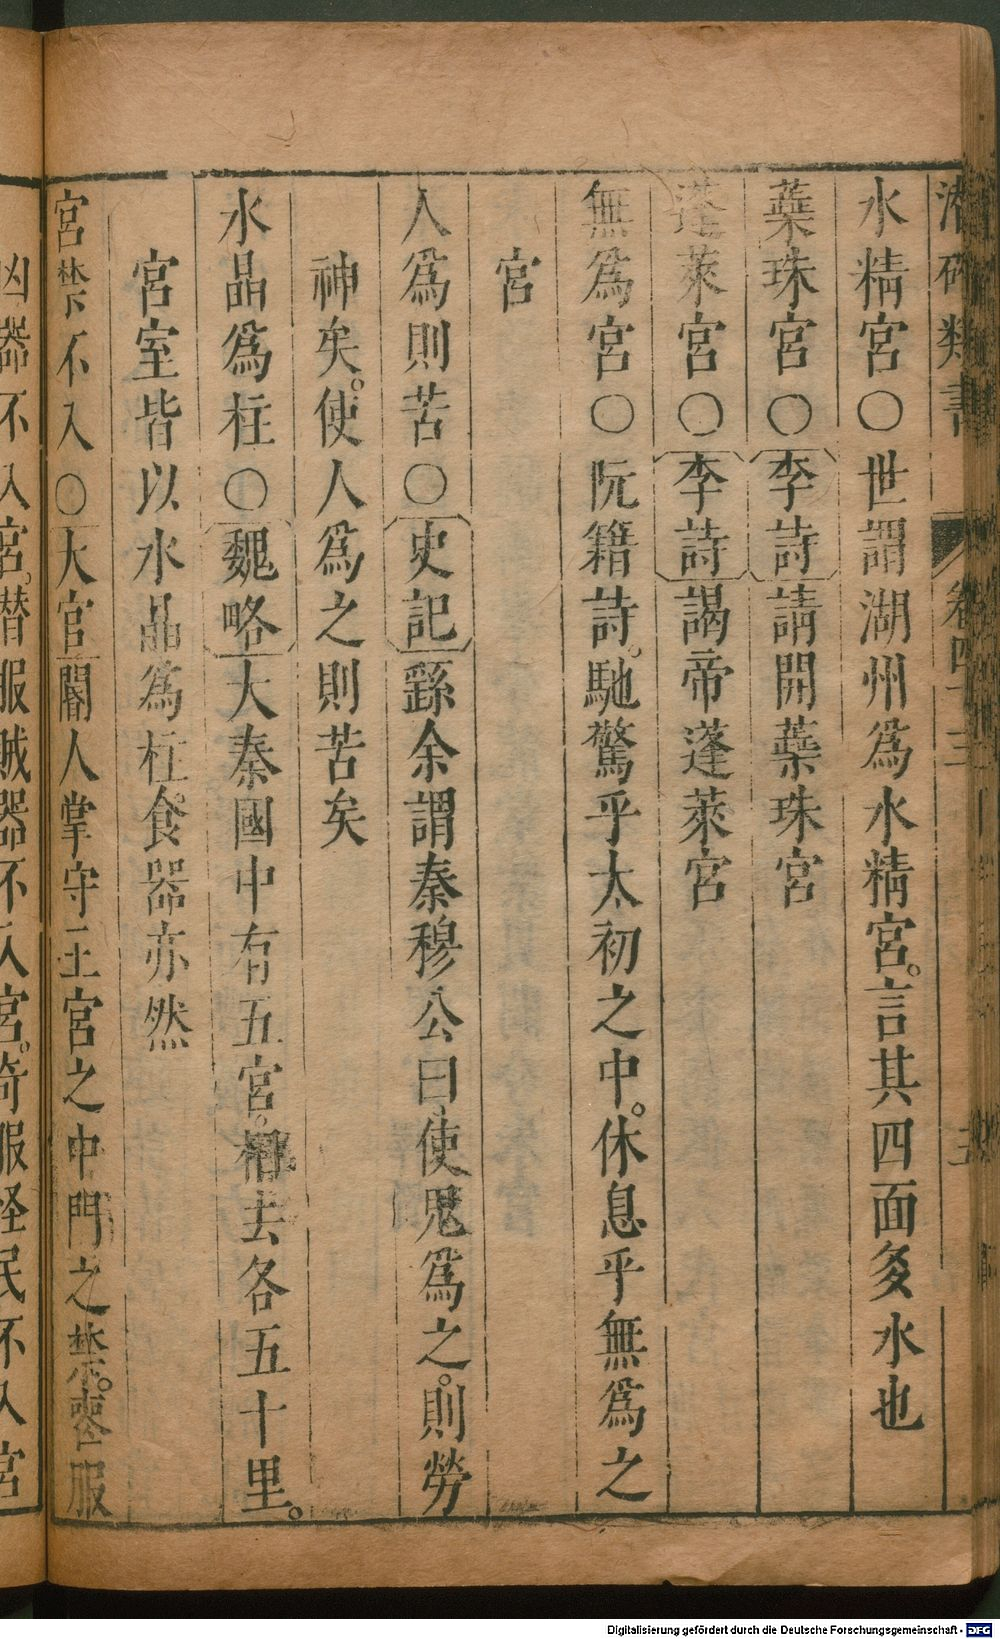 類書 卷四十三 三
水精宮○世謂湖州爲水精宮。言其四面多水也
蘂珠宮○李詩請開蘂珠宮
蓬萊宮○李詩謁帝蓬萊宮
無爲宮○阮籍詩。馳騖乎太初之中。休息乎無爲之
宮
人爲則苦○史記繇余謂秦穆公曰使鬼爲之。則勞
神矣。使人爲之則苦矣
水晶爲柱○魏略大秦國中有五宮。相去各五十里。
宮室皆以水晶爲柱。食器亦然
宮禁不入○天官閽人掌守王宮之中門之禁。喪服
凶器不入宮。潜服賊器不入宮。奇服怪民不入宮
Digitalisierung gefördert durch die Deutsche Forschungsgemeinschaft - DFG